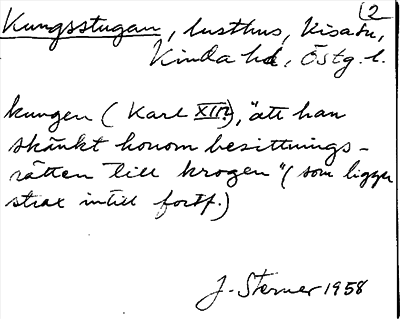 2
Kungsstugan, lusthus, Kisa sn,
Kinda hd, Östg. l.
kungen (Karl XIV), "att han
skänkt honom besittnings-
rätten till krogen" (som ligger
strax intill fortf.)
J. Sterner 1958